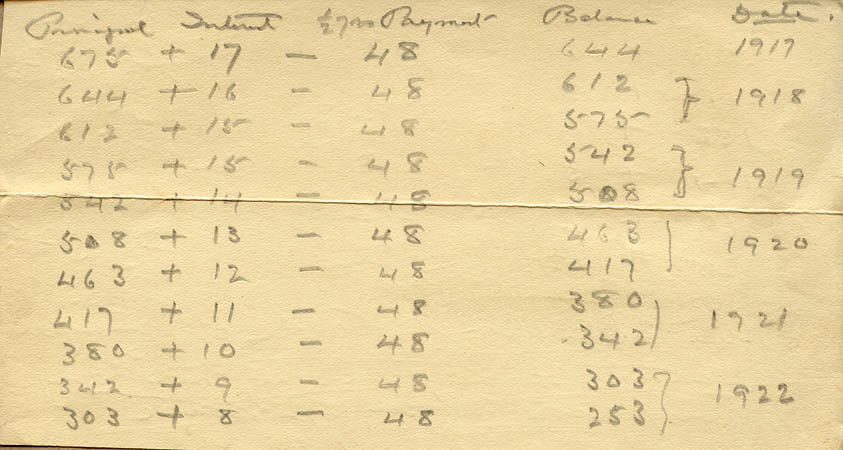 Principal Interest ½ yrs Payment Balance Date.
675 + 17 — 48 644 1917
644 + 16 — 48 612
1918
612 + 15 — 48 575
575 + 15 — 48 542
1919
542 + 14 — 48 508
508 + 13 — 48 463
1920
463 + 12 — 48 417
417 + 11 — 48 380
1921
380 + 10 — 48 342
342 + 9 — 48 303
1922
303 + 8 — 48 253